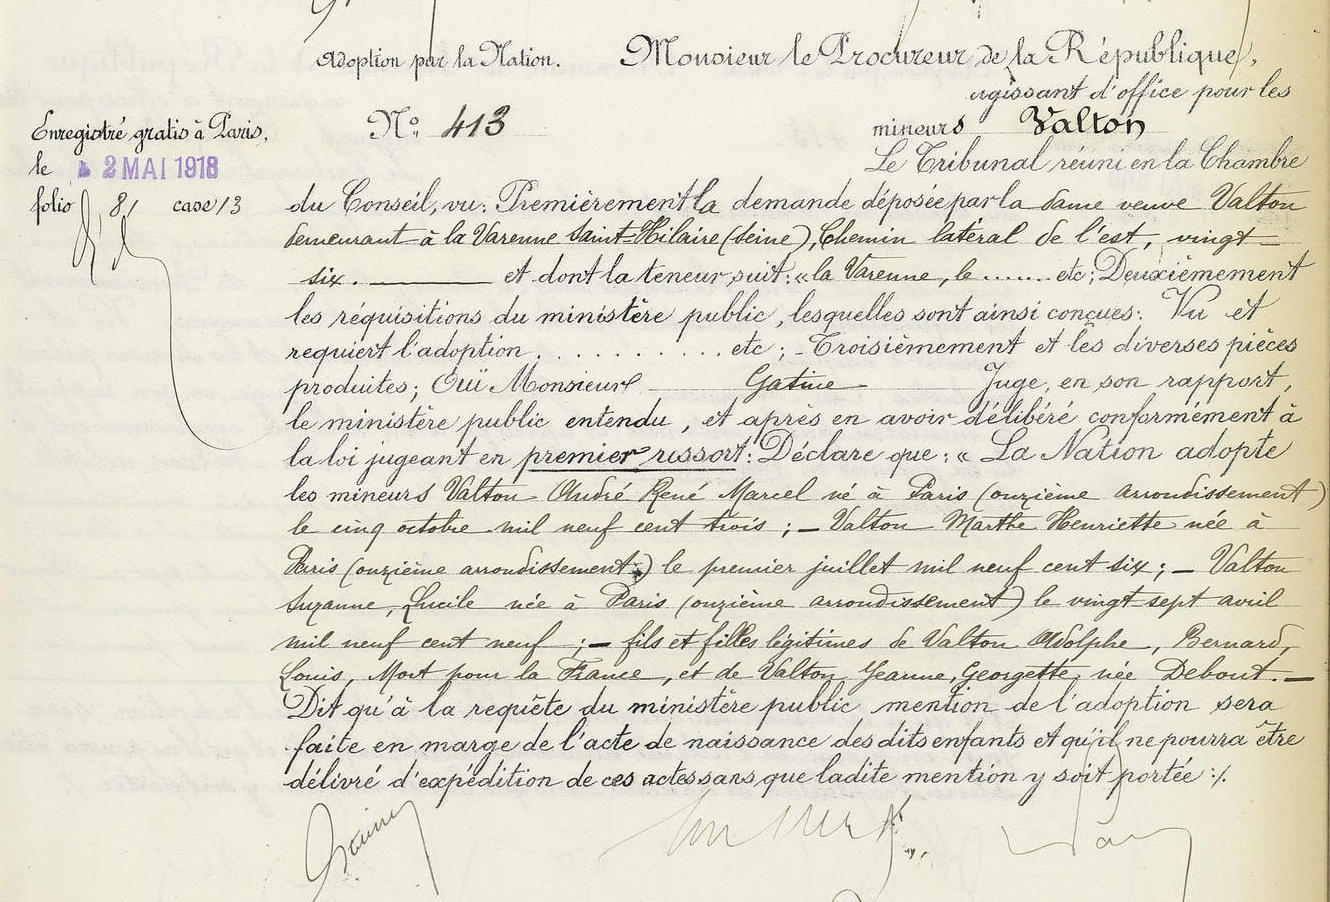 Adoption par la Nation.
Monsieur le Procureur de la République,
agissant d'office pour les
N° 413
mineurs Valton
Enregistré gratis à Paris,
le 2 MAI 1918
folio 81 case 13
Le Tribunal réuni en la Chambre
du Conseil, vu: Premièrement la demande déposée par la dame veuve Valton
demeurant à la Varenne Saint-Hilaire (Seine), Chemin latéral de l'est, vingt
six. et dont la teneur suit: « la Varenne, le ....... etc; Deuxièmement
les réquisitions du ministère public, lesquelles sont ainsi conçues: Vu et
requiert l'adoption . . . . . . . . . . etc ; - Troisièmement et les diverses pièces
produites; Ouï Monsieur Gatine Juge, en son rapport,
le ministère public entendu, et après en avoir délibéré conformément à
la loi jugeant en premier ressort: Déclare que: « La Nation adopte
les mineurs Valton André René Marcel né à Paris (onzième arrondissement)
le cinq octobre mil neuf cent trois ; — Valton Marthe Henriette née à
Paris (onzième arrondissement) le premier juillet mil neuf cent six ; — Valton
Suzanne, Lucile née à Paris (onzième arrondissement) le vingt sept avril
mil neuf cent neuf ; — fils et filles légitimes de Valton Adolphe, Bernard,
Louis, Mort pour la France, et de Valton Jeanne, Georgette, née Debout. —
Dit qu'à la requête du ministère public mention de l'adoption sera
faite en marge de l'acte de naissance des dits enfants et qu'il ne pourra être
délivré d'expédition de ces actes sans que ladite mention y soit portée ./.